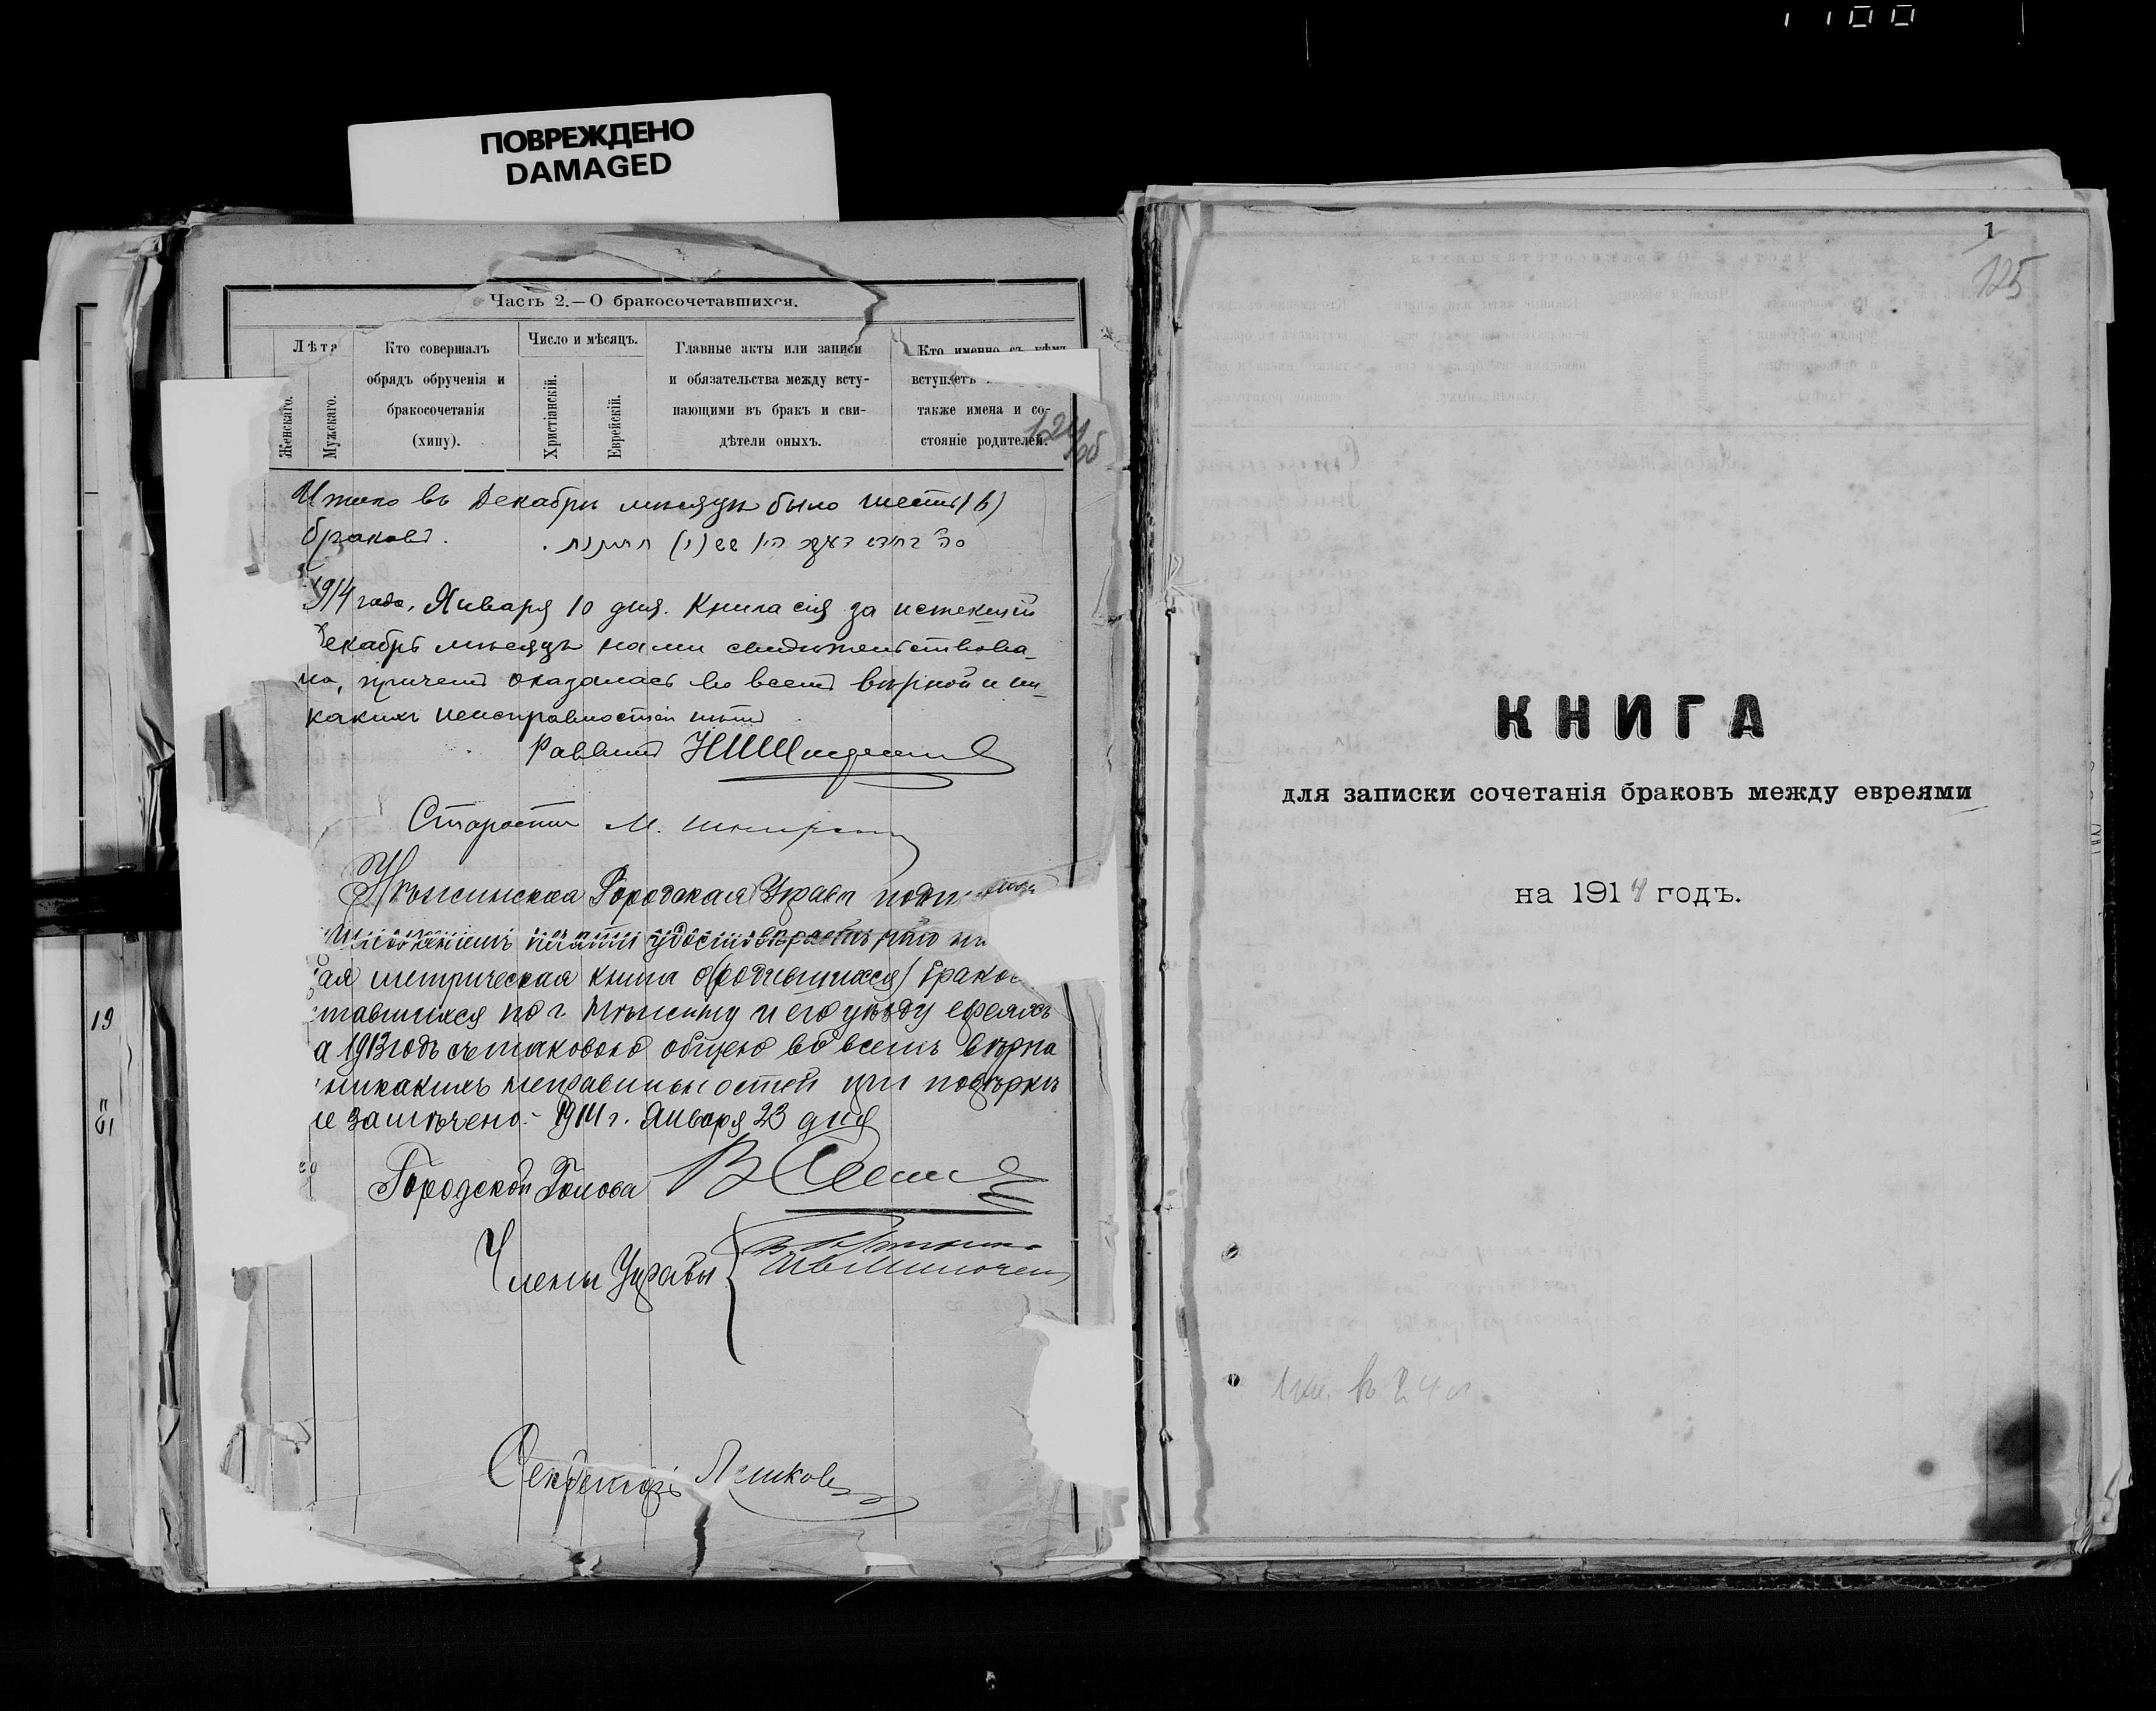 ПОВРЕЖДЕНО
DAMAGED
Часть 2.—О бракосочетавшихся.
Лѣта
Женскаго.
Мужскаго.
Кто совершалъ
обрядъ обрученія и
бракосочетанія
(хипу).
Число и мѣсяцъ.
Христіанскій.
Еврейскій.
Главные акты или записи
и обязательства между всту-
пающими въ бракъ и сви-
дѣтели оныхъ.
Кто именно съ кѣмъ
вступаетъ
также имена и со-
стояніе родителей.
Итого въ Декабрѣ мѣсяцѣ было шесть (6)
браковъ.
1914 года, Января 10 дня. Книга сія за истекшій
Декабрь мѣсяцъ нами свидѣтельствова-
на, причемъ оказалась во всемъ вѣрной и ни-
какихъ неисправностей нѣтъ
Раввинъ
Староста М.
Нѣжинская Городская Управа
печати удостовѣряетъ, что
ая метрическая книга о (родившихся) брако
тавшихся по г. Нѣжину и его уѣзду евреяхъ
а 1913 годъ съ таковою общею во всемъ вѣрна
никакихъ неправильностей при повѣркѣ
не замѣчено.- 1914 г. Января 23 дня
Городской Голова
Члены Управы
Секретарь
19
1
125
КНИГА
для записки сочетанія браковъ между евреями
на 1914 годъ.